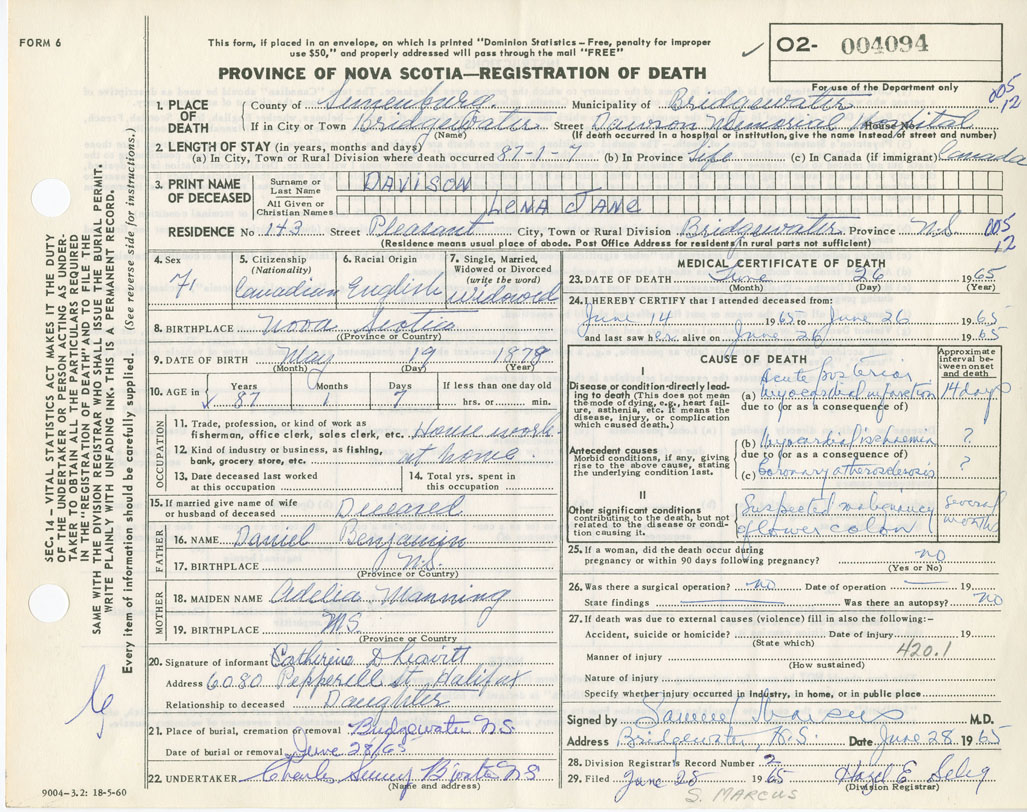 FORM 6
This form, if placed in an envelope, on which is printed "Dominion Statistics – Free, penalty for improper
use $50," and properly addressed will pass through the mail "FREE"
PROVINCE OF NOVA SCOTIA—REGISTRATION OF DEATH
✓ 02- 004094
For use of the Department only
005
12
1. PLACE OF DEATH County of Lunenburg Municipality of Bridgewater
If in City or Town Bridgewater Street Dawson Memorial Hospital House No.
(Name) (If death occurred in a hospital or institution, give the name instead of street and number)
2. LENGTH OF STAY (in years, months and days)
(a) In City, Town or Rural Division where death occurred 87-1-7 (b) In Province Life (c) In Canada (if immigrant) Canada
3. PRINT NAME OF DECEASED Surname or Last Name DAVISON
All Given or Christian Names LENA JANE
RESIDENCE No 143 Street Pleasant City, Town or Rural Division Bridgewater Province N.S. 005
12
(Residence means usual place of abode. Post Office Address for residents in rural parts not sufficient)
4. Sex 5. Citizenship (Nationality) 6. Racial Origin 7. Single, Married, Widowed or Divorced (write the word)
Canadian English Widowed
8. BIRTHPLACE Nova Scotia
(Province or Country)
9. DATE OF BIRTH May 19 1878
(Month) (Day) (Year)
10. AGE in Years Months Days If less than one day old
87 1 7 hrs. or min.
OCCUPATION
11. Trade, profession, or kind of work as
fisherman, office clerk, sales clerk, etc. House work
12. Kind of industry or business, as fishing,
bank, grocery store, etc. at home
13. Date deceased last worked at this occupation
14. Total yrs. spent in this occupation
15. If married give name of wife
or husband of deceased Deceased
FATHER
16. NAME Daniel Benjamin
17. BIRTHPLACE N.S.
(Province or Country)
MOTHER
18. MAIDEN NAME Adelia Manning
19. BIRTHPLACE N.S.
(Province or Country
20. Signature of informant Catherine D Leavitt
Address 6080 Pepperell St, Halifax
Relationship to deceased Daughter
21. Place of burial, cremation or removal Bridgewater N.S.
Date of burial or removal June 28/65
22. UNDERTAKER Charles B'water NS
(Name and address)
9004-3.2: 18-5-60
MEDICAL CERTIFICATE OF DEATH
23. DATE OF DEATH June 26 1965
(Month) (Day) (Year)
24. I HEREBY CERTIFY that I attended deceased from:
June 14 1965 to June 26 1965
and last saw her alive on June 26 1965
CAUSE OF DEATH
Approximate interval between onset and death
I
Disease or condition directly leading to death (This does not mean the mode of dying, e.g., heart failure, asthenia, etc. It means the disease, injury, or complication which caused death.)
(a) Acute posterior
myocardial infarction 14 days
due to (or as a consequence of)
Antecedent causes
Morbid conditions, if any, giving rise to the above cause, stating the underlying condition last.
(b) myocardial ischaemia ?
due to (or as a consequence of)
(c) Coronary atherosclerosis ?
II
Other significant conditions
contributing to the death, but not related to the disease or condition causing it.
Suspected malignancy several
of lower colon months
25. If a woman, did the death occur during
pregnancy or within 90 days following pregnancy? no
(Yes or No)
26. Was there a surgical operation? no Date of operation 19
State findings Was there an autopsy? no
27. If death was due to external causes (violence) fill in also the following:–
Accident, suicide or homicide? Date of injury 19
(State which) 420.1
Manner of injury
(How sustained)
Nature of injury
Specify whether injury occurred in industry, in home, or in public place
Signed by Samuel Marcus M.D.
Address Bridgewater, N.S. Date June 28 1965
28. Division Registrar's Record Number 2
29. Filed June 28 1965 Hazel E. Selig
(Division Registrar)
S. MARCUS
SEC. 14 – VITAL STATISTICS ACT MAKES IT THE DUTY
OF THE UNDERTAKER OR PERSON ACTING AS UNDER-
TAKER TO OBTAIN ALL THE PARTICULARS REQUIRED
IN THE "REGISTRATION OF DEATH" AND TO FILE THE
SAME WITH THE DIVISION REGISTRAR WHO SHALL ISSUE THE BURIAL PERMIT.
WRITE PLAINLY WITH UNFADING INK. THIS IS A PERMANENT RECORD.
Every item of information should be carefully supplied. (See reverse side for instructions.)